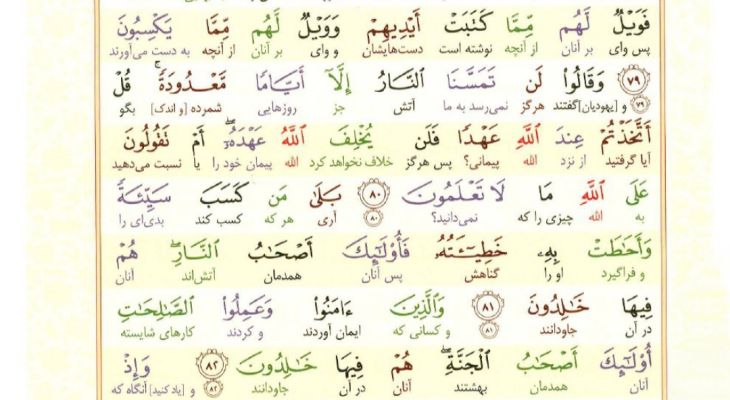 فَوَيْلٌ لَّهُم مِّمَّا كَتَبَتْ أَيْدِيهِمْ وَوَيْلٌ لَّهُم مِّمَّا يَكْسِبُونَ
پس وای بر آنان از آنچه نوشته است دست‌هایشان و وای بر آنان از آنچه به دست می‌آورند
۷۹ وَقَالُوا۟ لَن تَمَسَّنَا ٱلنَّارُ إِلَّآ أَيَّامًا مَّعْدُودَةً ۚ قُلْ
۷۹ و [یهودیان] گفتند هرگز نمی‌رسد به ما آتش جز روزهایی شمرده [و اندک] بگو
أَتَّخَذْتُمْ عِندَ ٱللَّهِ عَهْدًا فَلَن يُخْلِفَ ٱللَّهُ عَهْدَهُۥٓ ۖ أَمْ تَقُولُونَ
آیا گرفتید از نزد الله پیمانی؟ پس هرگز خلاف نخواهد کرد الله پیمان خود را یا نسبت می‌دهید
عَلَى ٱللَّهِ مَا لَا تَعْلَمُونَ ۸۰ بَلَىٰ مَن كَسَبَ سَيِّئَةً
به الله چیزی را که نمی‌دانید؟ ۸۰ آری هر که کسب کند بدی‌ای را
وَأَحَٰطَتْ بِهِۦ خَطِيٓـَٔتُهُۥ فَأُو۟لَٰٓئِكَ أَصْحَٰبُ ٱلنَّارِ ۖ هُمْ
و فراگیرد او را گناهش پس آنان همدمان آتش‌اند آنان
فِيهَا خَٰلِدُونَ ۸۱ وَٱلَّذِينَ ءَامَنُوا۟ وَعَمِلُوا۟ ٱلصَّٰلِحَٰتِ
در آن جاودانند ۸۱ و کسانی که ایمان آوردند و کردند کارهای شایسته
أُو۟لَٰٓئِكَ أَصْحَٰبُ ٱلْجَنَّةِ ۖ هُمْ فِيهَا خَٰلِدُونَ ۸۲ وَإِذْ
آنان همدمان بهشتند آنان در آن جاودانند ۸۲ و [یاد کنید] آنگاه که